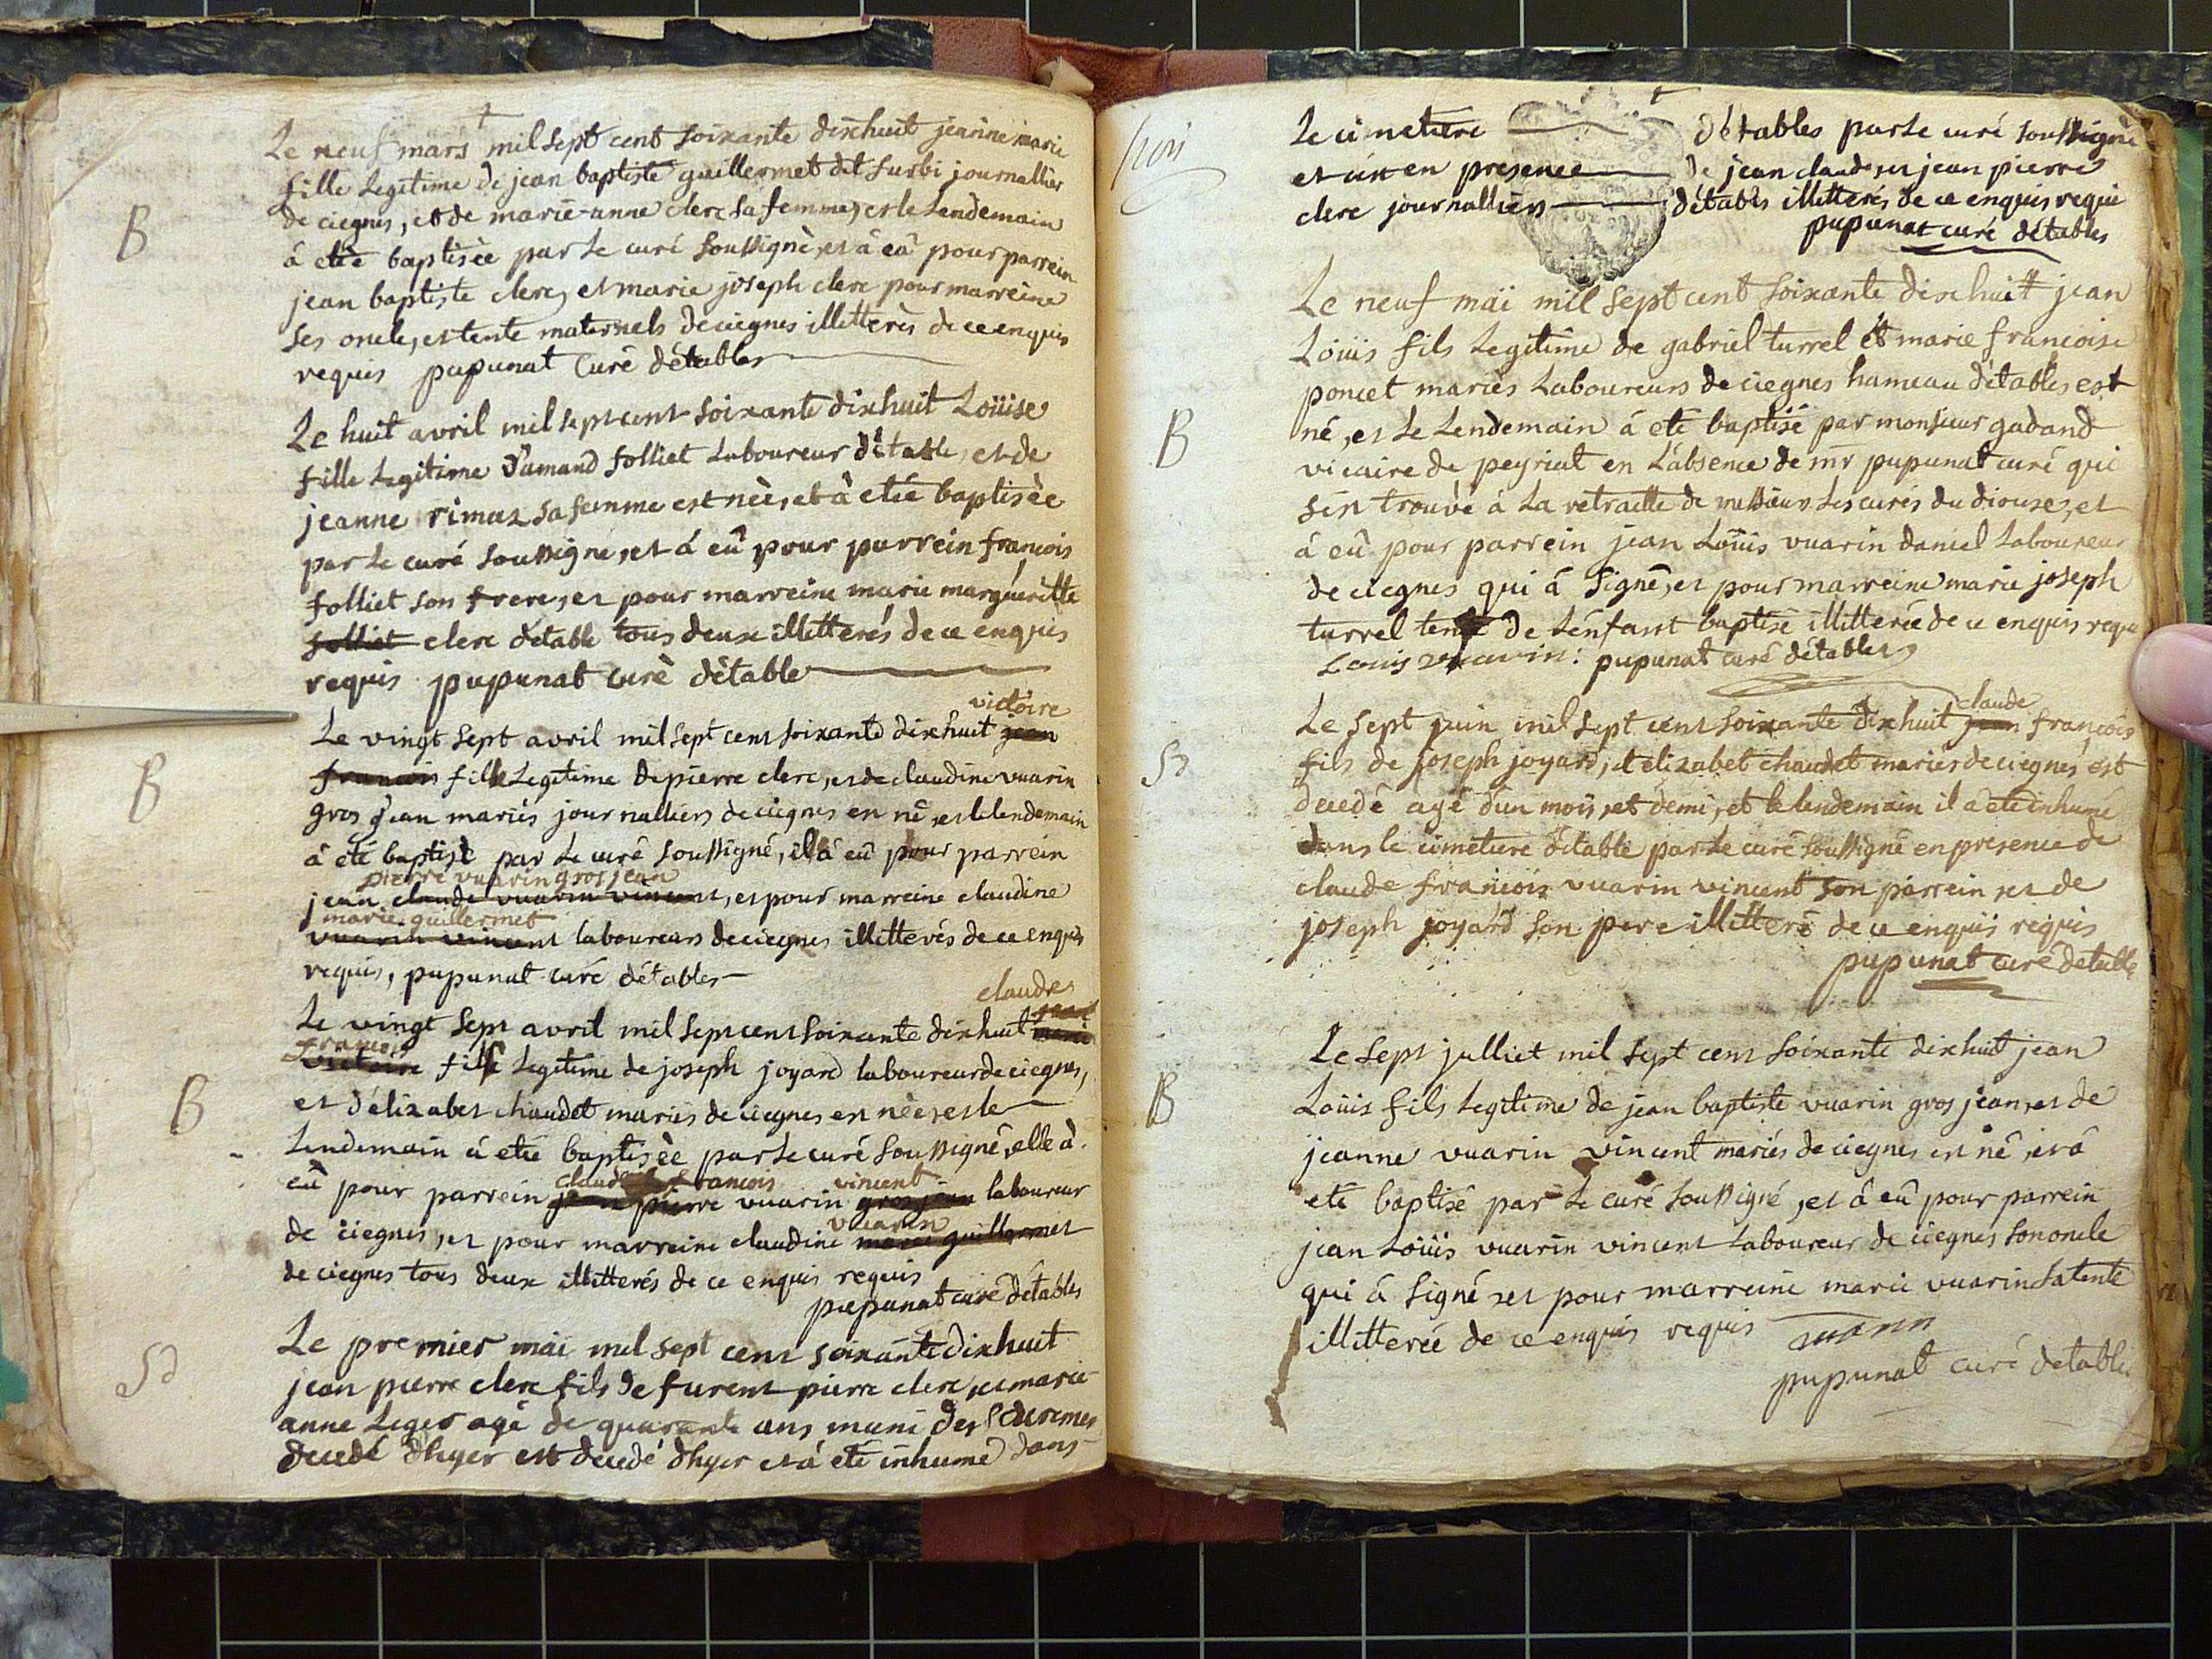 Le neuf mars mil sept cent soixante dixhuit jeanne marie
fille legitime de jean baptiste guillermet dit surbi journallier
de ciegnes, et de marie-anne clerc sa femme, et le lendemain
B
á etée baptisèe par le curé soussignè, et à eû pour parrein
jean baptiste clerc, et marie joseph clerc pour marreine
ses oncle, et tente maternels de ciegnes illitterès de ce enquis
requis pupunat Curé détables
Le huit avril mil sept cent soixante dixhuit Loüise
fille legitime d'amand folliet laboureur détable, et de
jeanne rimaz sa femme est nèe, et à etée baptisèe
par le curé soussigné, et á eû pour parrein francois
folliet son frere, et pour marreine marie marguéritte
folliet clerc détable tous deux illitterés de ce enquis
requis pupunat curè détable
victoire
Le vingt sept avril mil sept cent soixante dixhuit jean
francois fille legitime de pierre clerc, et de claudine vuarin
B
gros jean mariés journalliers de ciegnes en né, et le lendemain
á eté baptisé par le curé soussigné, il á eû pour parrein
pierre vuarin gros jean
jean claude vuarin vincent, et pour marreine claudine
marie guillermet
vuarin vincent laboureurs de ciegnes illitterés de ce enquis
requis, pupunat curé détables
claude
Le vingt sept avril mil sept cent soixante dixhuit marie
francois
victoire fille legitime de joseph joyard laboureur de ciegnes,
B
et d'élizabet chaudet mariés de ciegnes en nèe, et le
lendemain á etée baptisèe par le curé soussigné, elle à
claude francois vincent
eû pour parrein jean pierre vuarin gros jean laboureur
vuarin
de ciegnes, et pour marreine claudine marie guillermet
de ciegnes tous deux illitterés de ce enquis requis
pupunat curé détables
Le premier mai mil sept cent soixante dixhuit
Sd
jean pierre clerc fils de furent pierre clerc, et marie
anne Leger agé de quarante ans muni des Sacremen
decedé d'hyer est decedé d'hyer et á eté inhumé dans
Le cimetiere détables par le curé soussigné
et ce en presence de jean claude, et jean pierre
clerc journalliers détables illitterés de ce enquis requis
pupunat curé détables
Le neuf mai mil sept cent soixante dixhuitt jean
Loüis fils legitime de gabriel turrel et marie francoise
poncet mariés laboureurs de ciegnes hameau d'étables est
B
né, et le lendemain á eté baptisé par monsieur gadand
vicaire de peyriat en l'absence de mr pupunat curé qui
s'én trouvé á la retraitte de messieurs les curés du diocese, et
á eû pour parrein jean Loüis vuarin daniel laboureur
de ciegnes qui á signé, et pour marreine marie joseph
turrel tente de l'énfant baptisé illitterée de ce enquis requi
Louis vuarin: pupunat curé détables
claude
Le sept juin mil sept cent soixante dixhuit jean francois
Sd
fils de joseph joyard, et elizabet chaudet mariés de ciegnes, est
decedé agé d'un mois, et demi, et le lendemain il á eté inhumé
dans le cimetiere détable par le curé soussigné en presence de
claude francois vuarin vincent son parrein, et de
joseph joyard son pere illitteré de ce enquis requis
pupunat curé detable
Le sept julliet mil sept cent soixante dixhuit jean
B
Loüis fils legitime de jean baptiste vuarin gros jean, et de
jeanne vuarin vincent mariés de ciegnes en né, et á
eté baptisé par le curé soussigné, et á eû pour parrein
jean Loüis vuarin vincent laboureur de ciegnes son oncle
qui á signé, et pour marreine marie vuarin sa tente
illitterée de ce enquis requis vuarin
pupunat curé detables